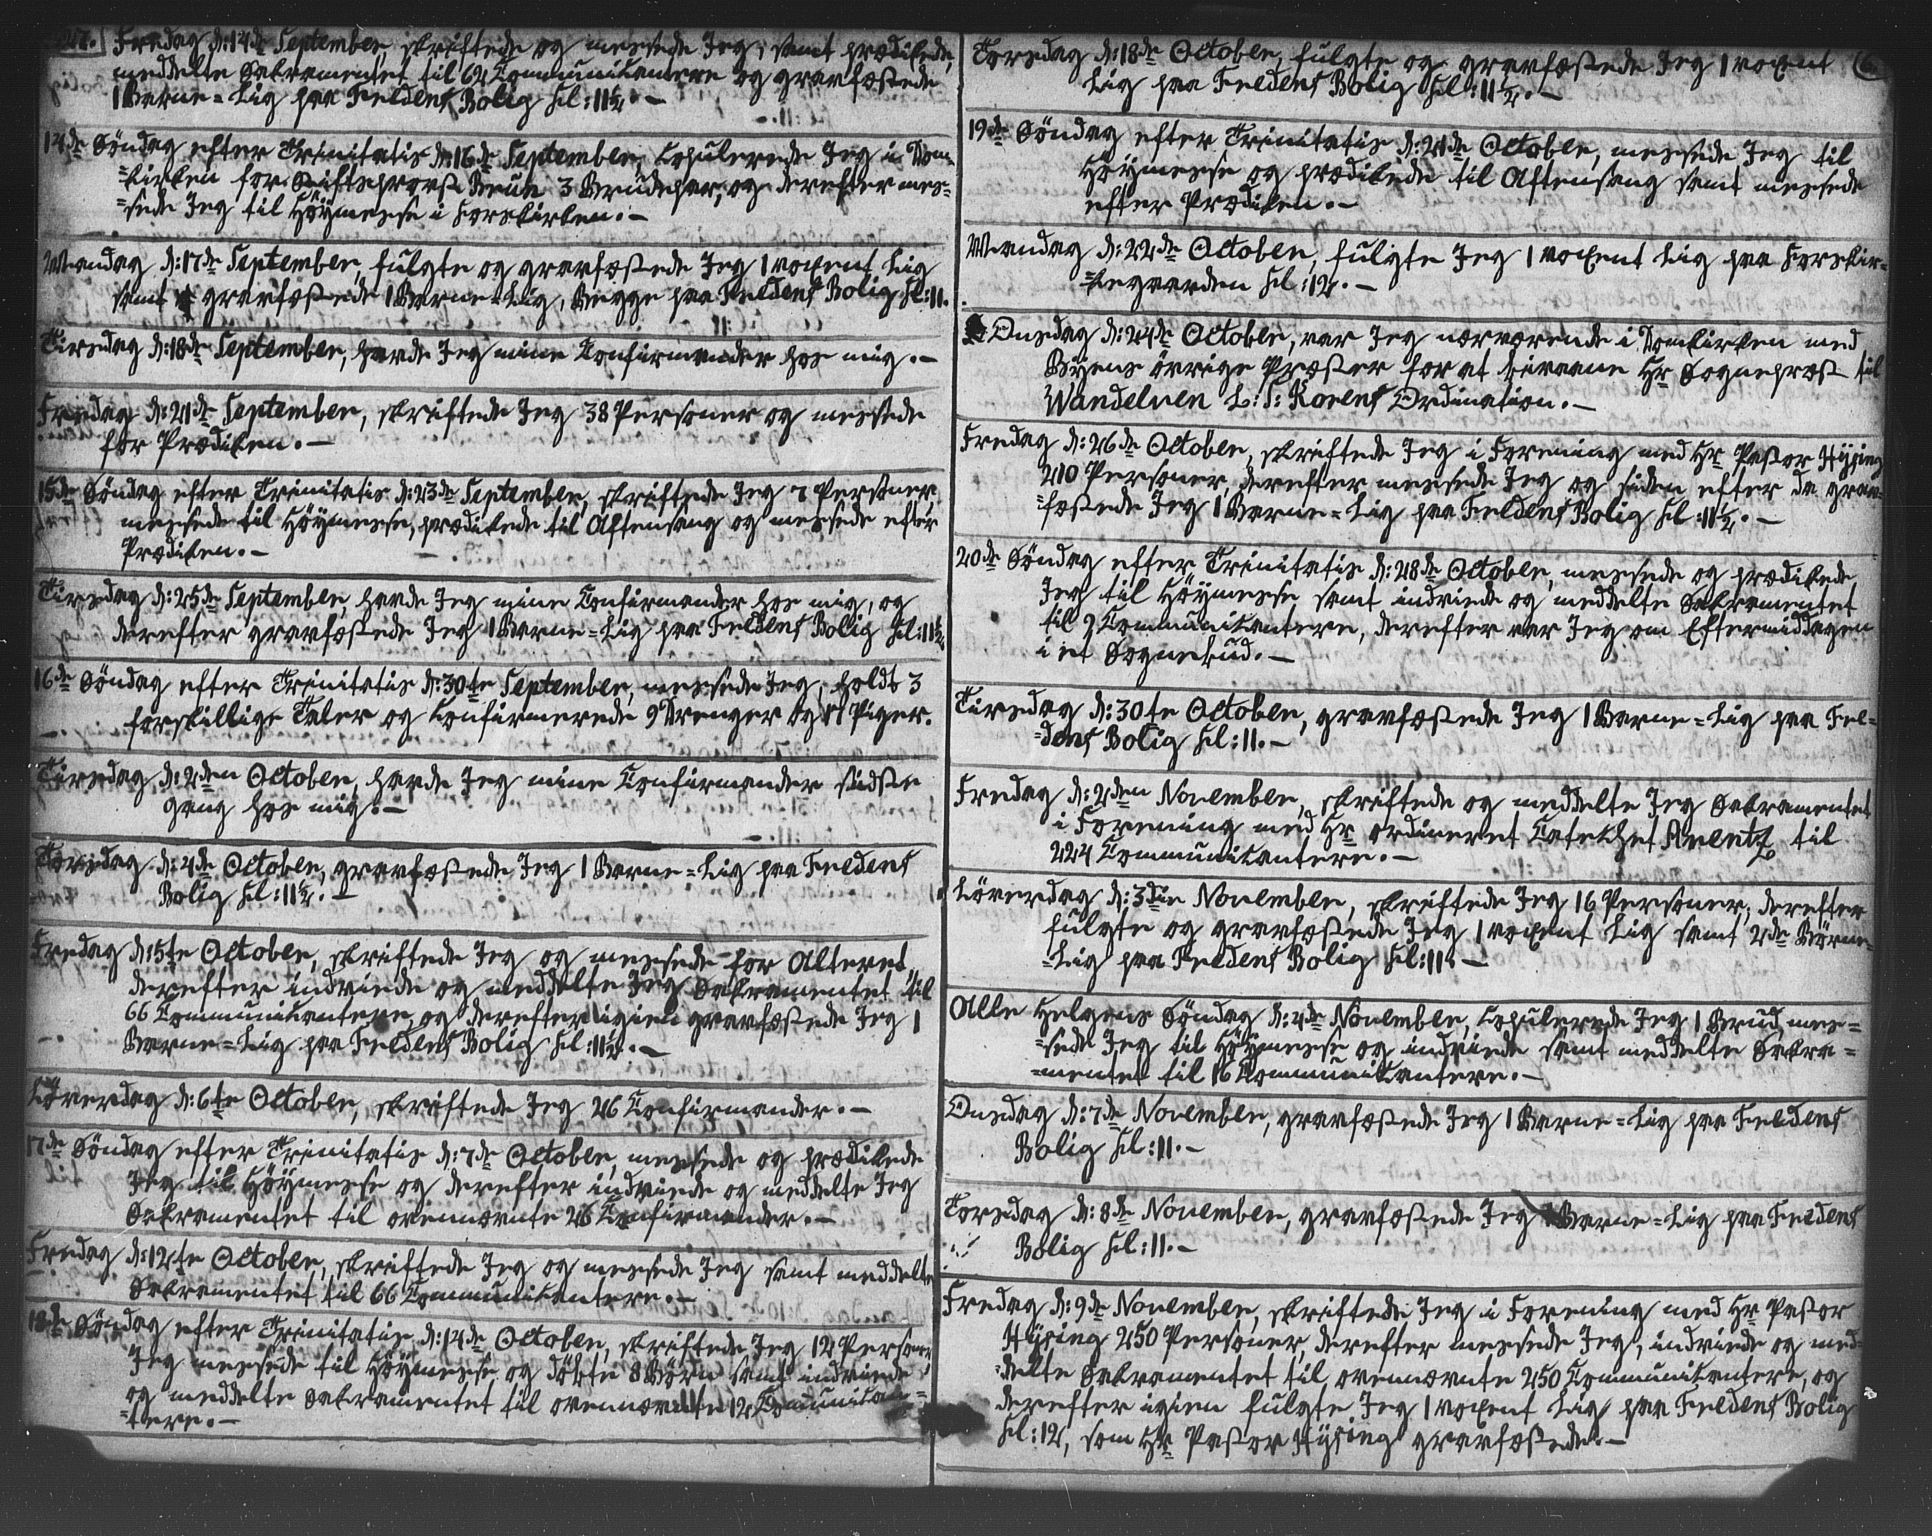 Fredag d: 14de September, skriftede og messede Jeg, samt prædikede,
meddelte Sakramentet til 62 Communicantere og gravfæstede
1 Barne=Lig paa Freldens Bolig Kl: 11½.-
14de Söndag efter Trinitatis d: 16de September, Copulerede Jeg i Dom=
=kirken for Stiftsprovst 3 Brüdepar, og derefter mes=
=sede Jeg til Höymesse i Korskirken.-
Mandag d: 17de September, fulgte og gravfæstede Jeg 1 voxent Lig
samt gravfæstede 1 Barne=Lig, Begge paa Freldens Bolig Kl: 11.
Tirsdag d: 18de September, havde Jeg mine Confirmander hos mig.-
Fredag d: 21de September, skriftede Jeg 38 Personer og messede
for Prædiken.-
15de Söndag efter Trinitatis d: 23de September, skriftede Jeg 7 Personer,
messede til Höymesse, prædikede til Aftensang og messede efter
Prædiken.-
Tirsdag d: 25de September, havde Jeg mine Confirmander hos mig, og
derefter gravfæstede Jeg 1 Barne=Lig paa Freldens Bolig Kl: 11½
16de Söndag efter Trinitatis d: 30te September, messede Jeg, holdt 3
forskillige Taler og Confirmerede 9 Drenger og Piger.
Tirsdag d: 2den October, havde Jeg mine Confirmander sidste
gang hos mig.-
Torsdag d: 4de October, gravfæstede Jeg 1 Barne=Lig paa Freldens
Bolig Kl: 11½.-
Fredag d: 5te October, skriftede Jeg og messede for Alteret
derefter indviede og meddelte Jeg Sakramentet til
66 Communicantere og derefter igien gravfæstede Jeg 1
Barne=Lig paa Freldens Bolig Kl: 11½.-
Löverdag d: 6te October, skriftede Jeg 26 Confirmander.-
17de Söndag efter Trinitatis d: 7de October, messede og prædikede
Jeg til Höymesse og derefter indviede og meddelte Jeg
Sakramentet til ovennævnte 26 Confirmander.-
Fredag d: 12te October, skriftede Jeg og messede Jeg samt meddelte
Sakramentet til 66 Communicantere.-
18de Söndag efter Trinitatis d: 14de October, skriftede Jeg 12 Personer
Jeg messede til Höymesse og döbte 8 Börn samt indviede
og meddelte Sakramentet til ovennævnte 12 Communican=
=tere.-
Torsdag d: 18de October, fulgte og gravfæstede Jeg 1 voxent
Lig paa Freldens Bolig Kl: 11½.-
19de Söndag efter Trinitatis d: 21de October, messede Jeg til
Höymesse og prædikede til Aftensang samt messede
efter Prædiken.-
Mandag d: 22de October, fulgte Jeg 1 voxent Lig paa Korskir=
=kegaarden Kl: 12.-
Onsdag d: 24de October, var Jeg nærværende i Domkirken med
Byens övrige Præster for at bivaane Hr Sognepræst til
Wandelven L: S: Korens Ordination.-
Fredag d: 26de October, skriftede Jeg i Forening med Hr Pastor Hysing
210 Personer, derefter messede Jeg og siden efter da grav=
=fæstede Jeg 1 Barne=Lig paa Freldens Bolig Kl: 11½.-
20de Söndag efter Trinitatis d: 28de October, messede og prædikede
Jeg til Höymesse samt indviede og meddelte Sakramentet
til 9 Communicantere, derefter var Jeg om Eftermiddagen
i et Sognebud.-
Tirsdag d: 30te October, gravfæstede Jeg 1 Barne=Lig paa Frel=
=dens Bolig Kl: 11.-
Fredag d: 2den November, skriftede og meddelte Jeg Sakramentet
i Forening med Hr ordineret Catechet Arentz til
224 Communicantere.-
Löverdag d: 3die November, skriftede Jeg 16 Personer, derefter
fulgte og gravfæstede Jeg 1 voxent Lig samt 2de Börne
=Lig paa Freldens Bolig Kl: 11.-
Alle Helgens Söndag d: 4de November, Copulerede Jeg 1 Brud, mes=
=sede Jeg til Höymesse og indviede samt meddelte Sakra=
=mentet til 16 Communicantere.-
Onsdag d: 7de November, gravfæstede Jeg 1 Barne=Lig paa Freldens
Bolig Kl: 11.-
Torsdag d: 8de November, gravfæstede Jeg 1 Barne=Lig paa Freldens
Bolig Kl: 11.-
Fredag d: 9de November, skriftede Jeg i Forening med Hr Pastor
Hysing 250 Personer, derefter messede Jeg, indviede og med=
=delte Sakramentet til ovennævnte 250 Communicantere, og
derefter igien fulgte Jeg 1 voxent Lig paa Freldens Bolig
Kl: 12, som Hr Pastor Hysing gravfæstede.-